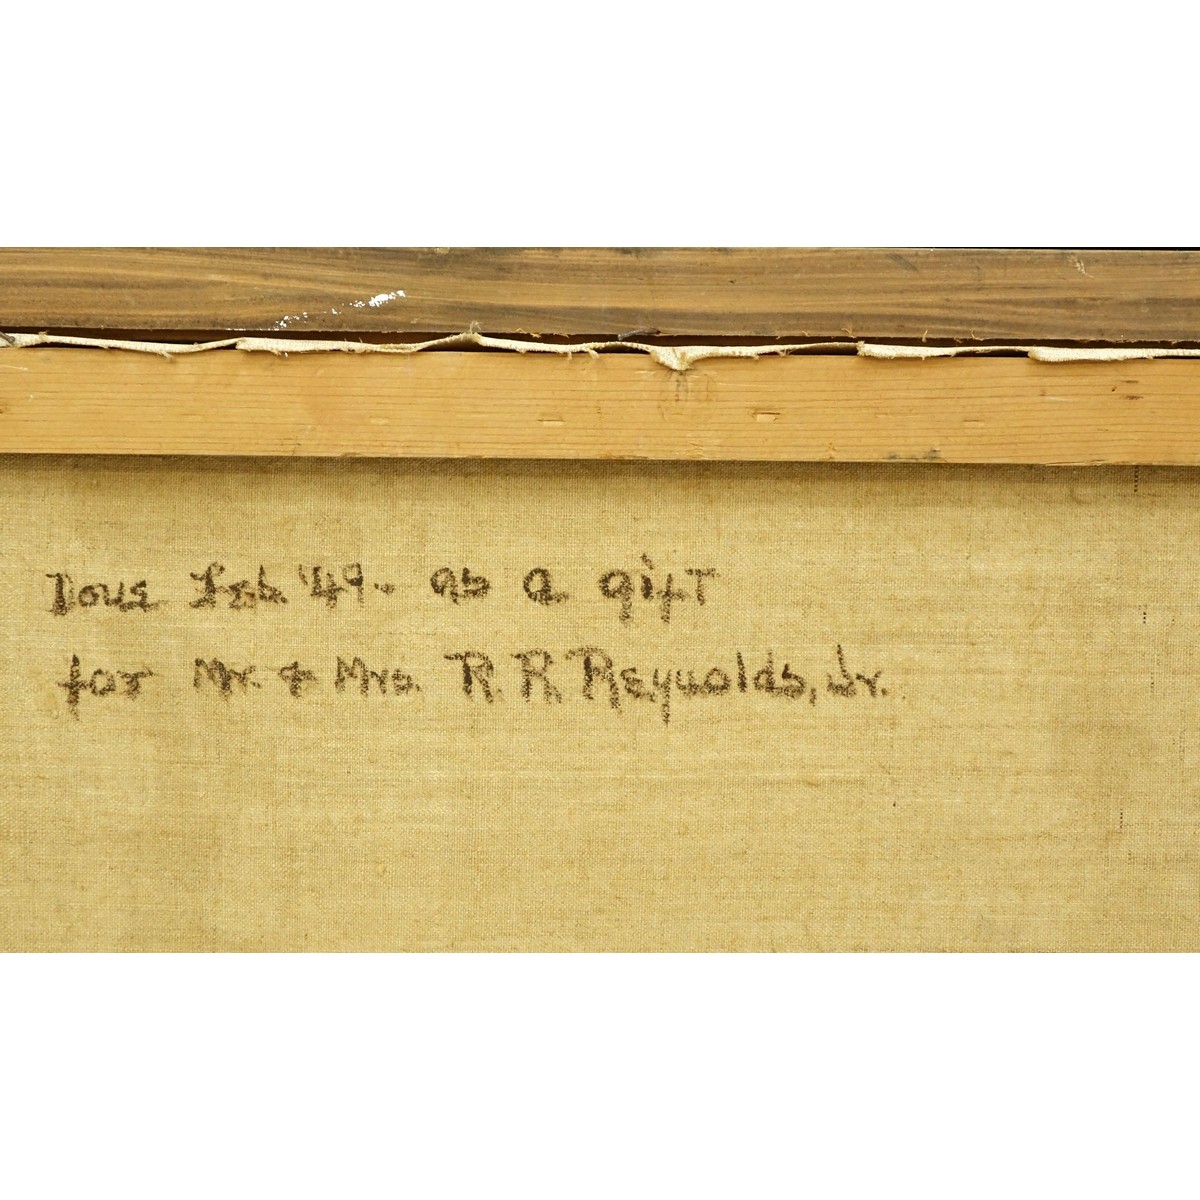 Done Feb. '49 - as a gift
for Mr. & Mrs. R. R. Reynolds, Jr.